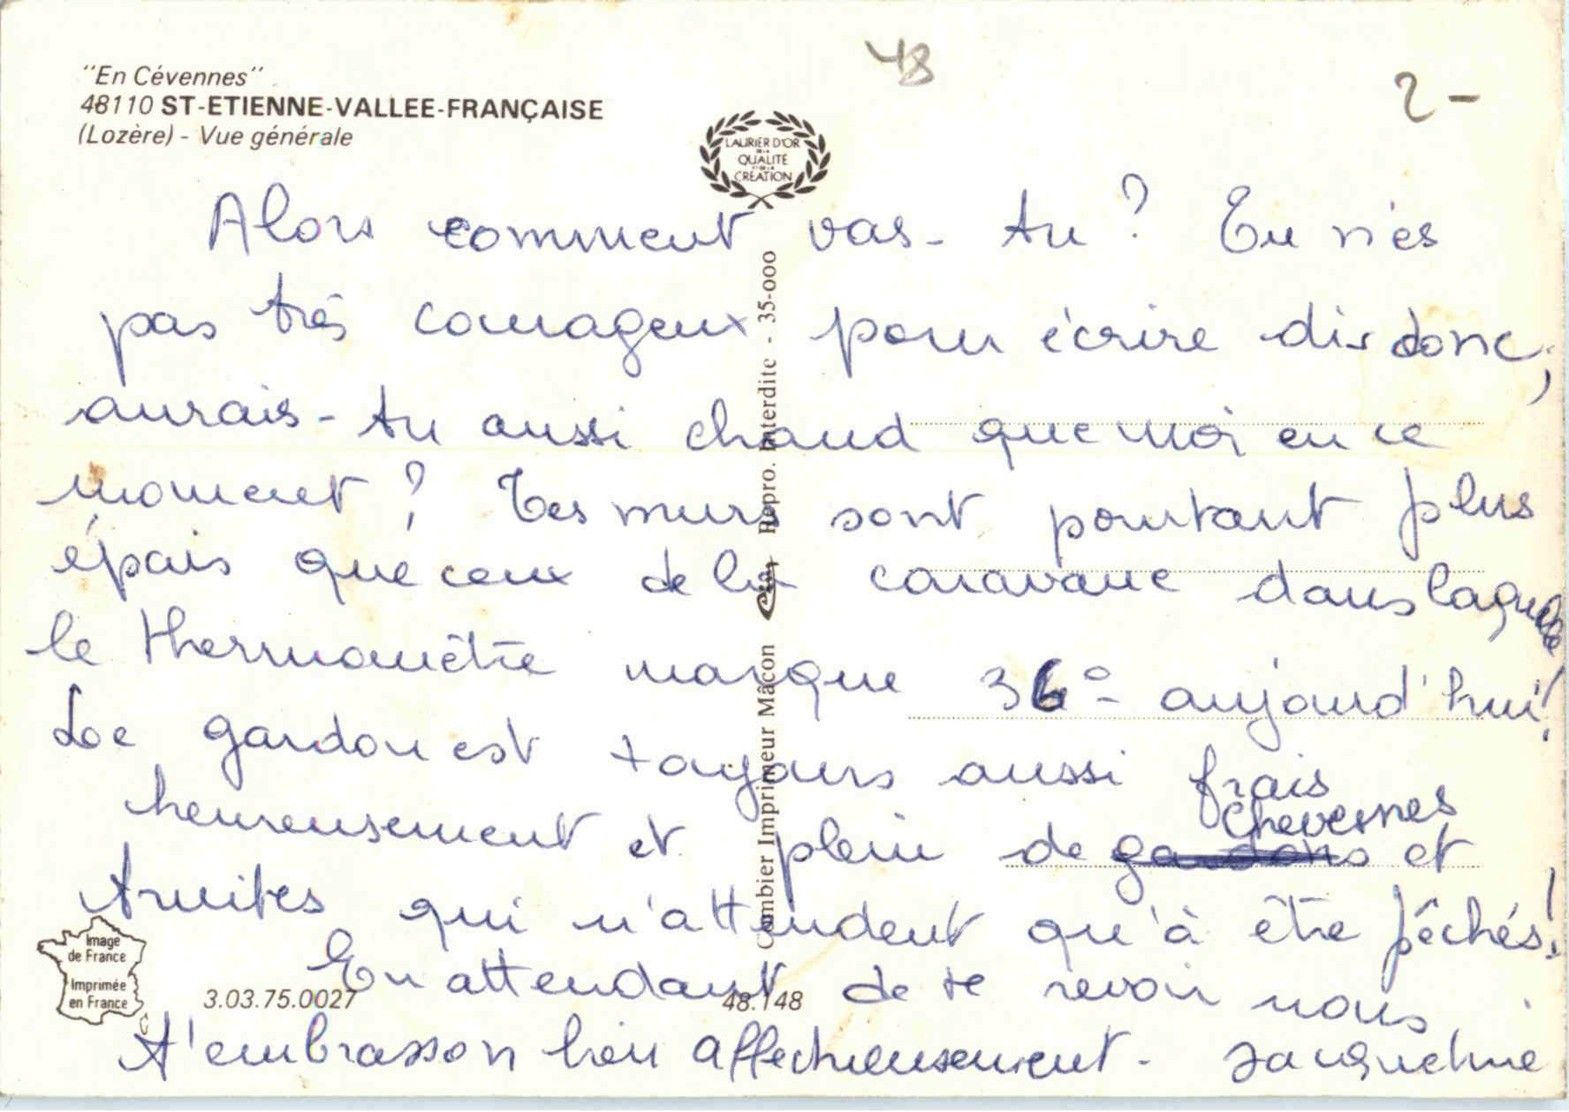 "En Cévennes"
48110 ST-ETIENNE-VALLEE-FRANÇAISE
(Lozère) - Vue générale
48
2-
LAURIER D'OR
DE LA
QUALITE
ET DE LA
CRÉATION
Alors comment vas-tu ? Tu n'es
pas très courageux pour écrire dis donc,
aurais-tu aussi chaud que moi en ce
moment ? Tes murs sont pourtant plus
épais que ceux de la caravane dans laquelle
le thermomètre marque 36° aujourd'hui !
Le gardon est toujours aussi frais
heureusement et plein de gardons chevesnes et
truites qui n'attendent qu'à être pêchés !
En attendant de te revoir nous
t'embrasson bien affectueusement - Jacqueline
Combier Imprimeur Mâcon Cim Repro. Interdite - 35-000
Image
de France
Imprimée
en France
3.03.75.0027
48.148